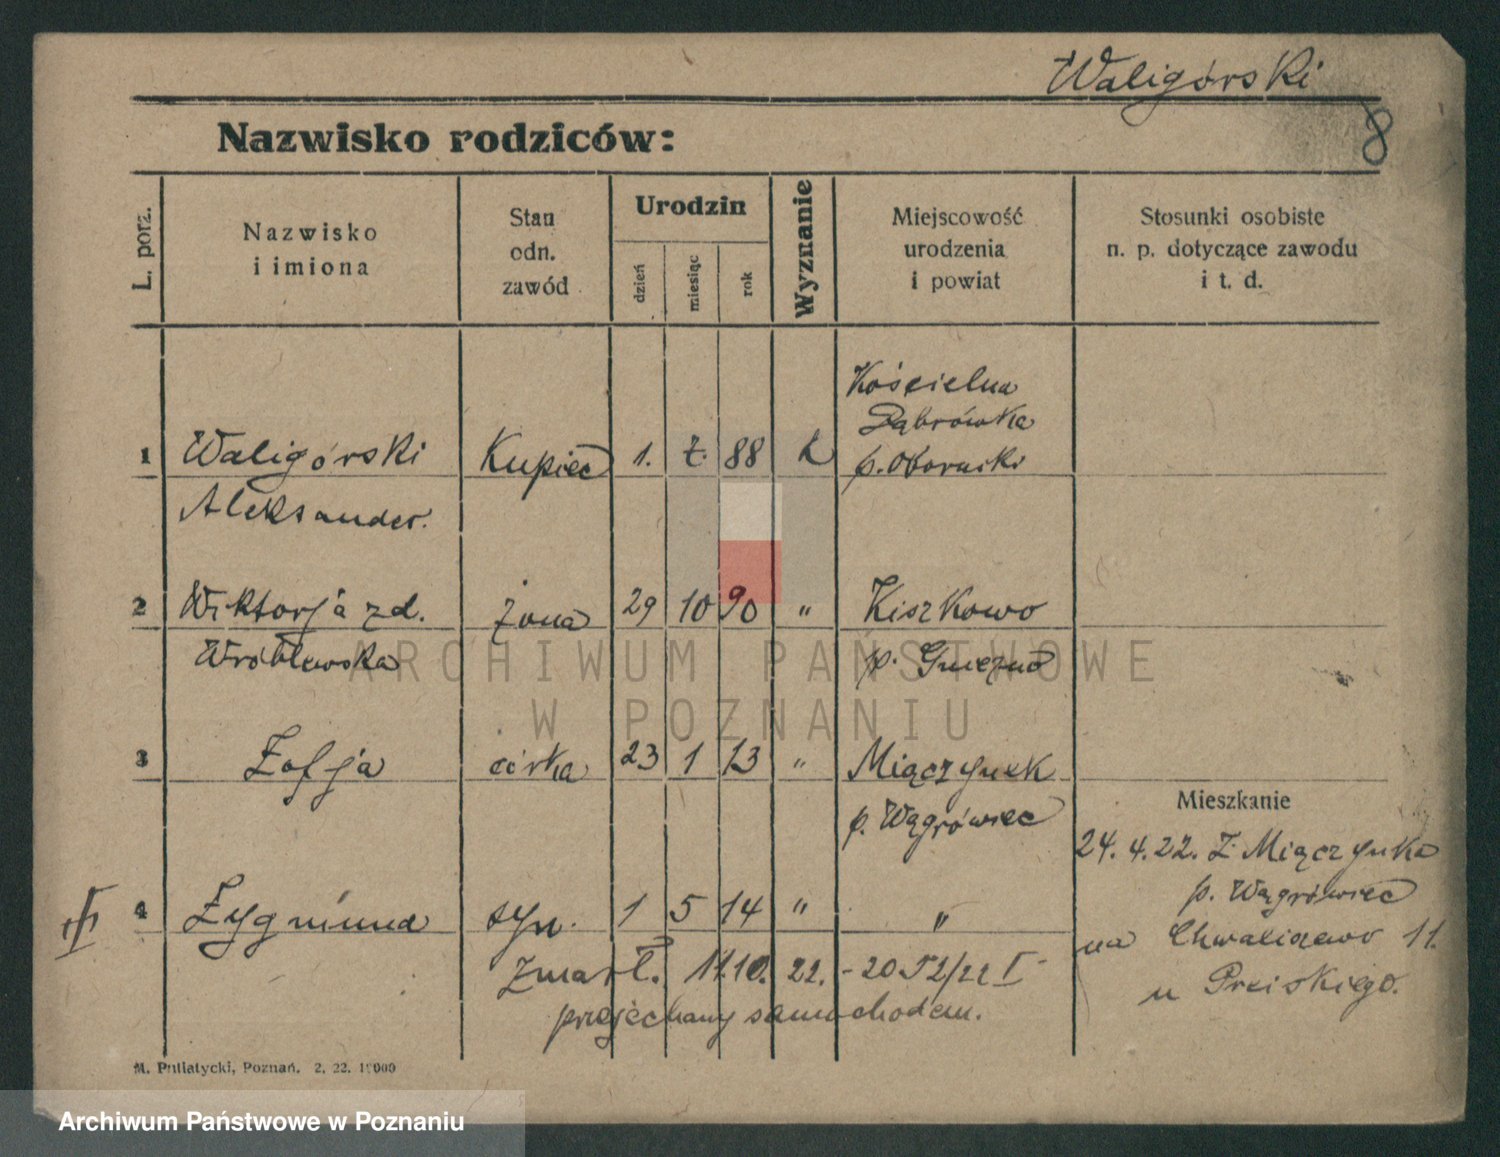 Waligórski
8
Nazwisko rodziców:
L. porz.
Nazwisko
i imiona
Stan
odn.
zawód
Urodzin
dzień
miesiąc
rok
Wyznanie
Miejscowość
urodzenia
i powiat
Stosunki osobiste
n. p. dotyczące zawodu
i t. d.
Kościelna
Dąbrówka
1 Waligórski Kupiec 1. 88 k p. Obornicki
Aleksander.
2 Wiktorja zd. żona 29 10 90 " Kiszkowo
Wróblewska p. Gniezno
ARCHIWUM PAŃSTWOWE
W POZNANIU
3 Zofja córka 23 1 13 " Miączynek
p. Wągrówiec
Mieszkanie
24. 4. 22. Z Miączynka
p. Wągrówiec
III 4 Zygmund syn. 1 5 14 " "
na Chwaliszewo 11.
zmarł. 11.10. 22. - 20 I -
u Preiskiego.
przejechany samochodem.
M. Putiatycki, Poznań. 2. 22. 1000
Archiwum Państwowe w Poznaniu